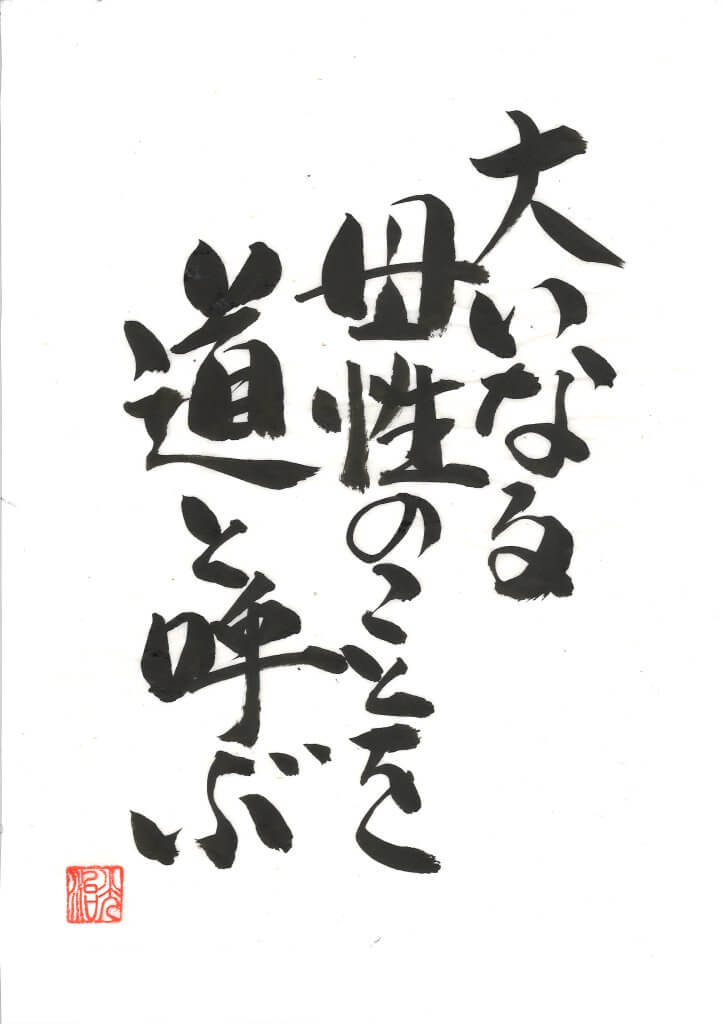 大いなる
母性のことを
道と呼ぶ